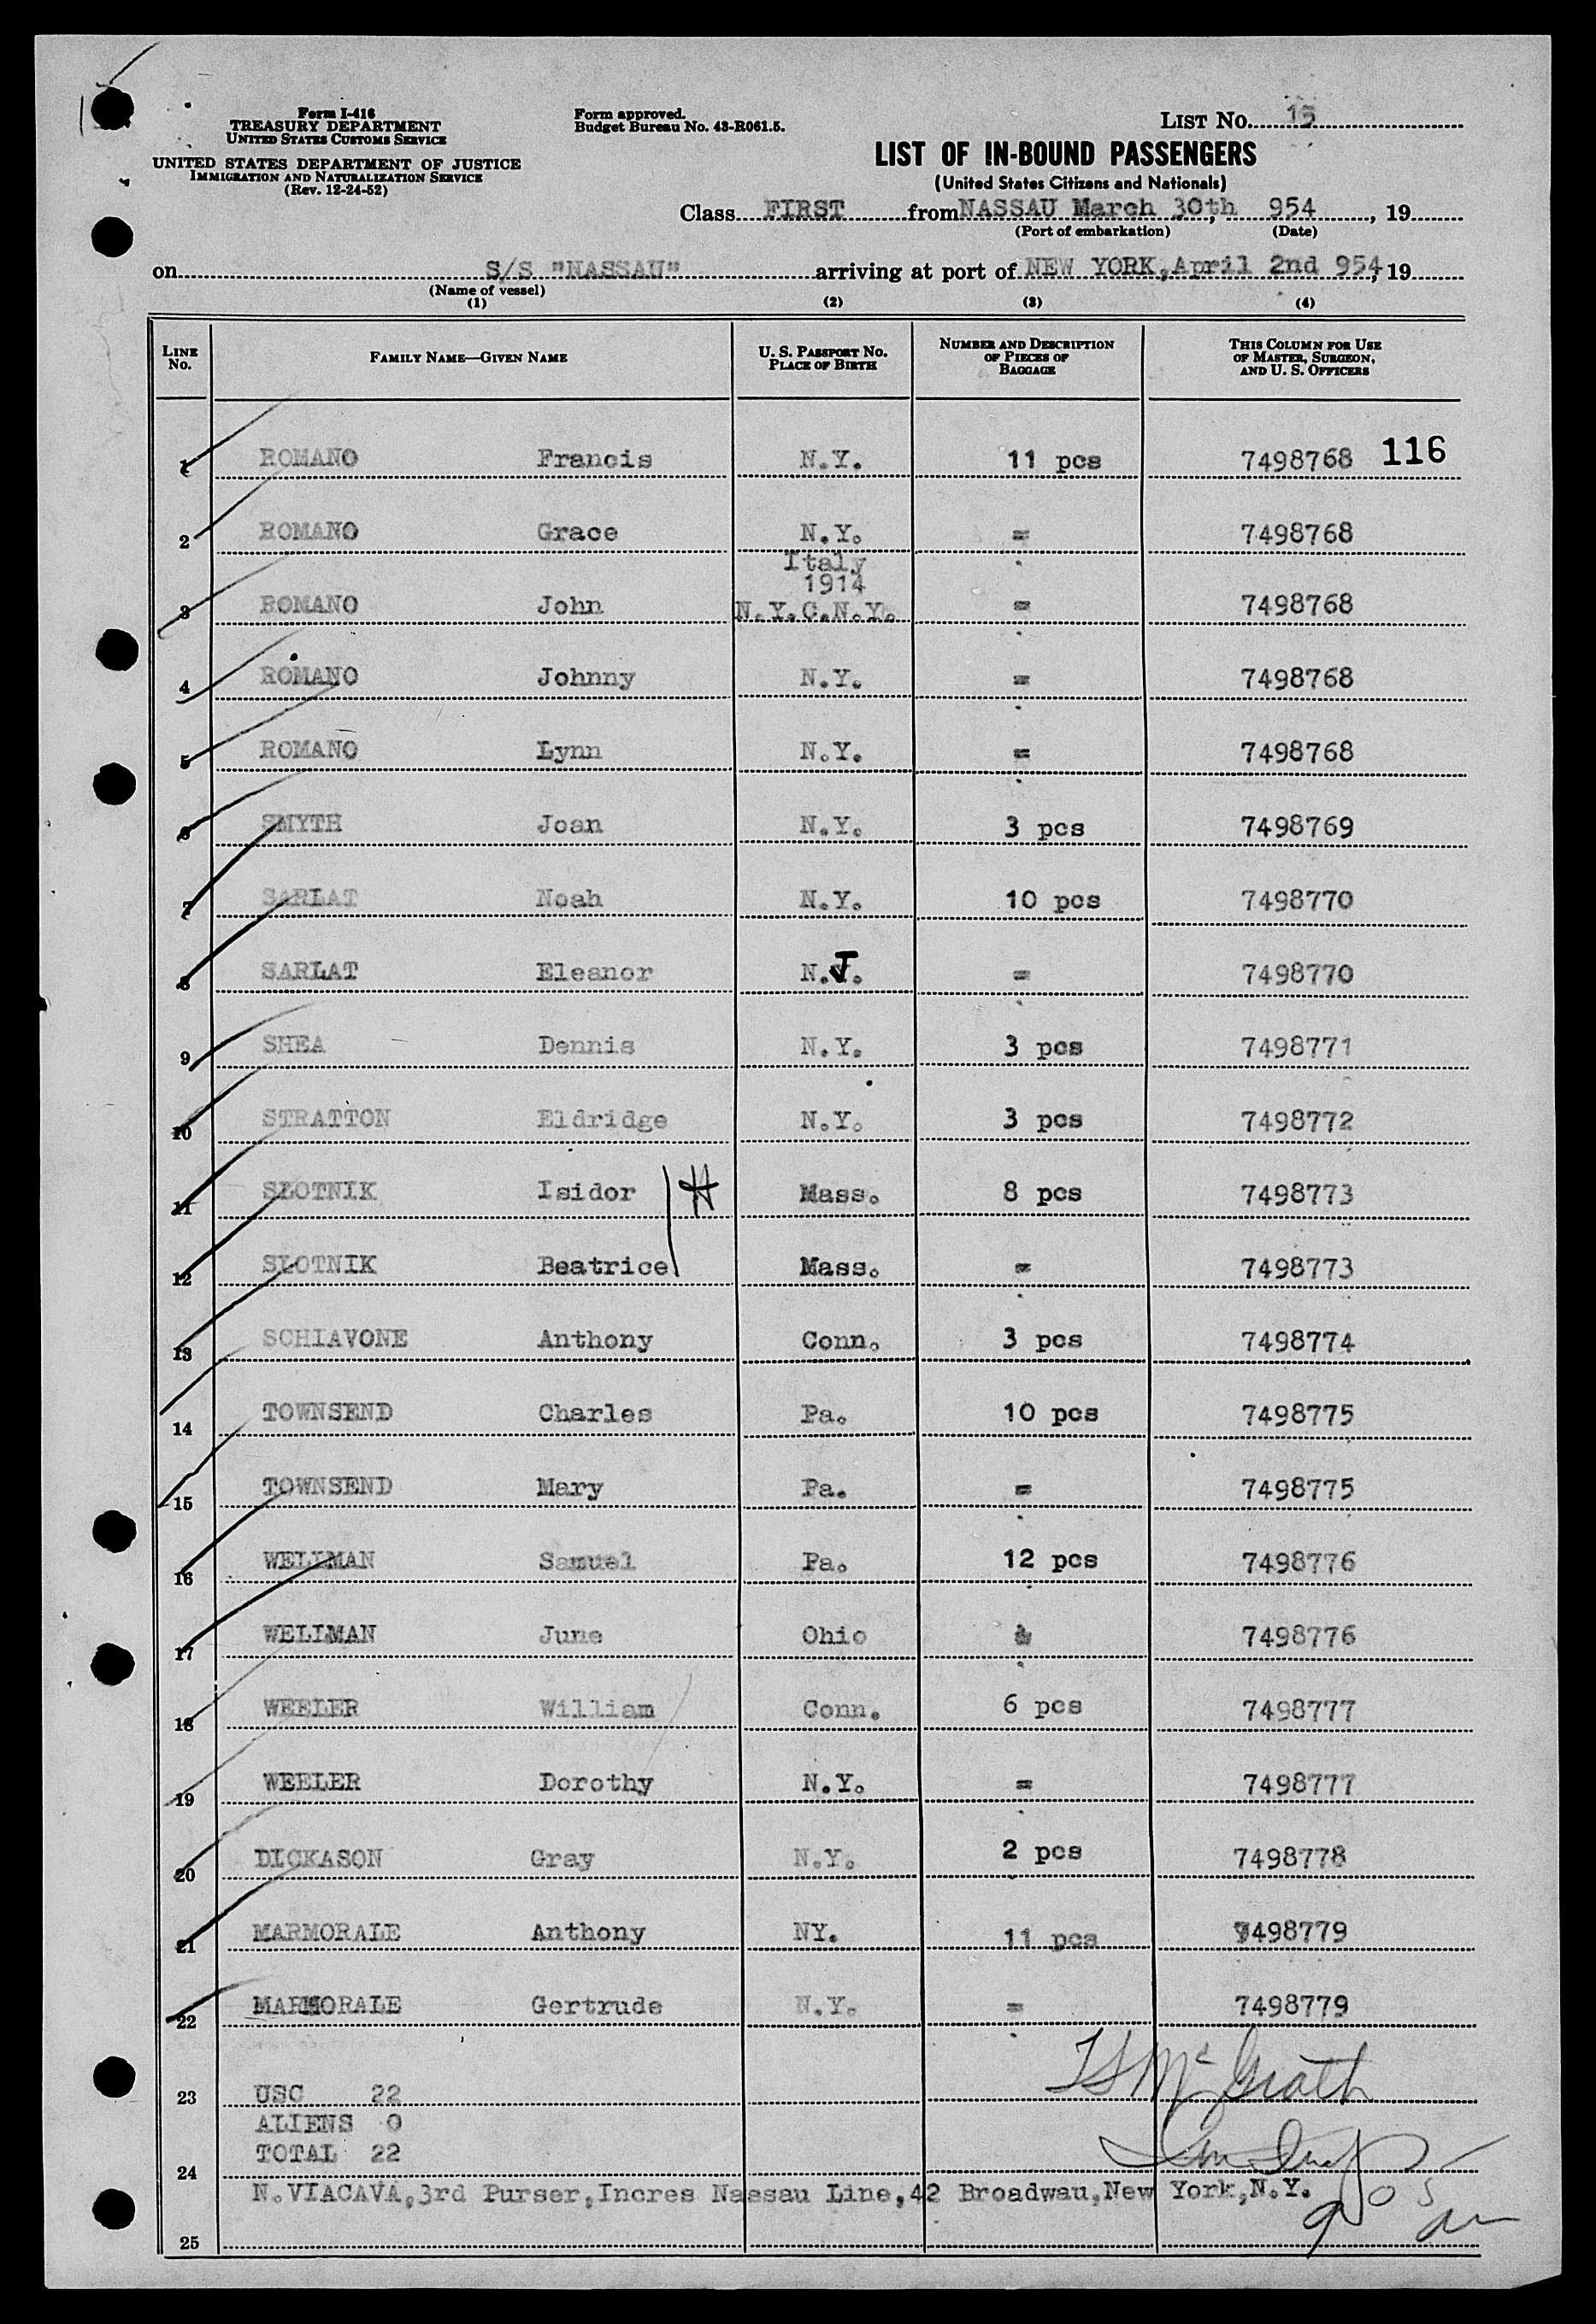 Form I-416
TREASURY DEPARTMENT
UNITED STATES CUSTOMS SERVICE
UNITED STATES DEPARTMENT OF JUSTICE
IMMIGRATION AND NATURALIZATION SERVICE
(Rev. 12-24-52)
Form approved.
Budget Bureau No. 43-R061.5.
LIST No. 15
LIST OF IN-BOUND PASSENGERS
(United States Citizens and Nationals)
Class FIRST from NASSAU March 30th, 954, 19
(Port of embarkation) (Date)
on S/S "NASSAU" arriving at port of NEW YORK, April 2nd 954, 19
(Name of vessel)
(1) (2) (3) (4)
LINE No. FAMILY NAME—GIVEN NAME U. S. PASSPORT No. PLACE OF BIRTH NUMBER AND DESCRIPTION OF PIECES OF BAGGAGE THIS COLUMN FOR USE OF MASTER, SURGEON, AND U. S. OFFICERS
1 ROMANO Francis N.Y. 11 pcs 7498768 116
2 ROMANO Grace N.Y. = 7498768
Italy
1914
3 ROMANO John N.Y.C.N.Y. = 7498768
4 ROMANO Johnny N.Y. = 7498768
5 ROMANO Lynn N.Y. = 7498768
6 SMYTH Joan N.Y. 3 pcs 7498769
7 SARLAT Noah N.Y. 10 pcs 7498770
8 SARLAT Eleanor N.J. = 7498770
9 SHEA Dennis N.Y. 3 pcs 7498771
10 STRATTON Eldridge N.Y. 3 pcs 7498772
11 SLOTNIK Isidor H Mass. 8 pcs 7498773
12 SLOTNIK Beatrice Mass. = 7498773
13 SCHIAVONE Anthony Conn. 3 pcs 7498774
14 TOWNSEND Charles Pa. 10 pcs 7498775
15 TOWNSEND Mary Pa. = 7498775
16 WELLMAN Samuel Pa. 12 pcs 7498776
17 WELLMAN June Ohio 7498776
18 WEELER William Conn. 6 pcs 7498777
19 WEELER Dorothy N.Y. = 7498777
20 DICKASON Gray N.Y. 2 pcs 7498778
21 MARMORALE Anthony NY. 11 pcs 7498779
22 MARMORALE Gertrude N.Y. = 7498779
23 USC 22
ALIENS 0
TOTAL 22
24
N.VIACAVA,3rd Purser,Incres Nassau Line,42 Broadwau,New York,N.Y.
25